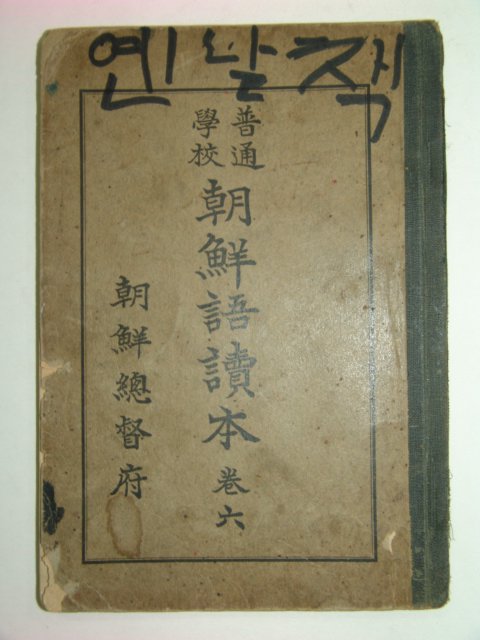 옌날책
普通
學校
朝鮮語讀本 卷六
朝鮮總督府